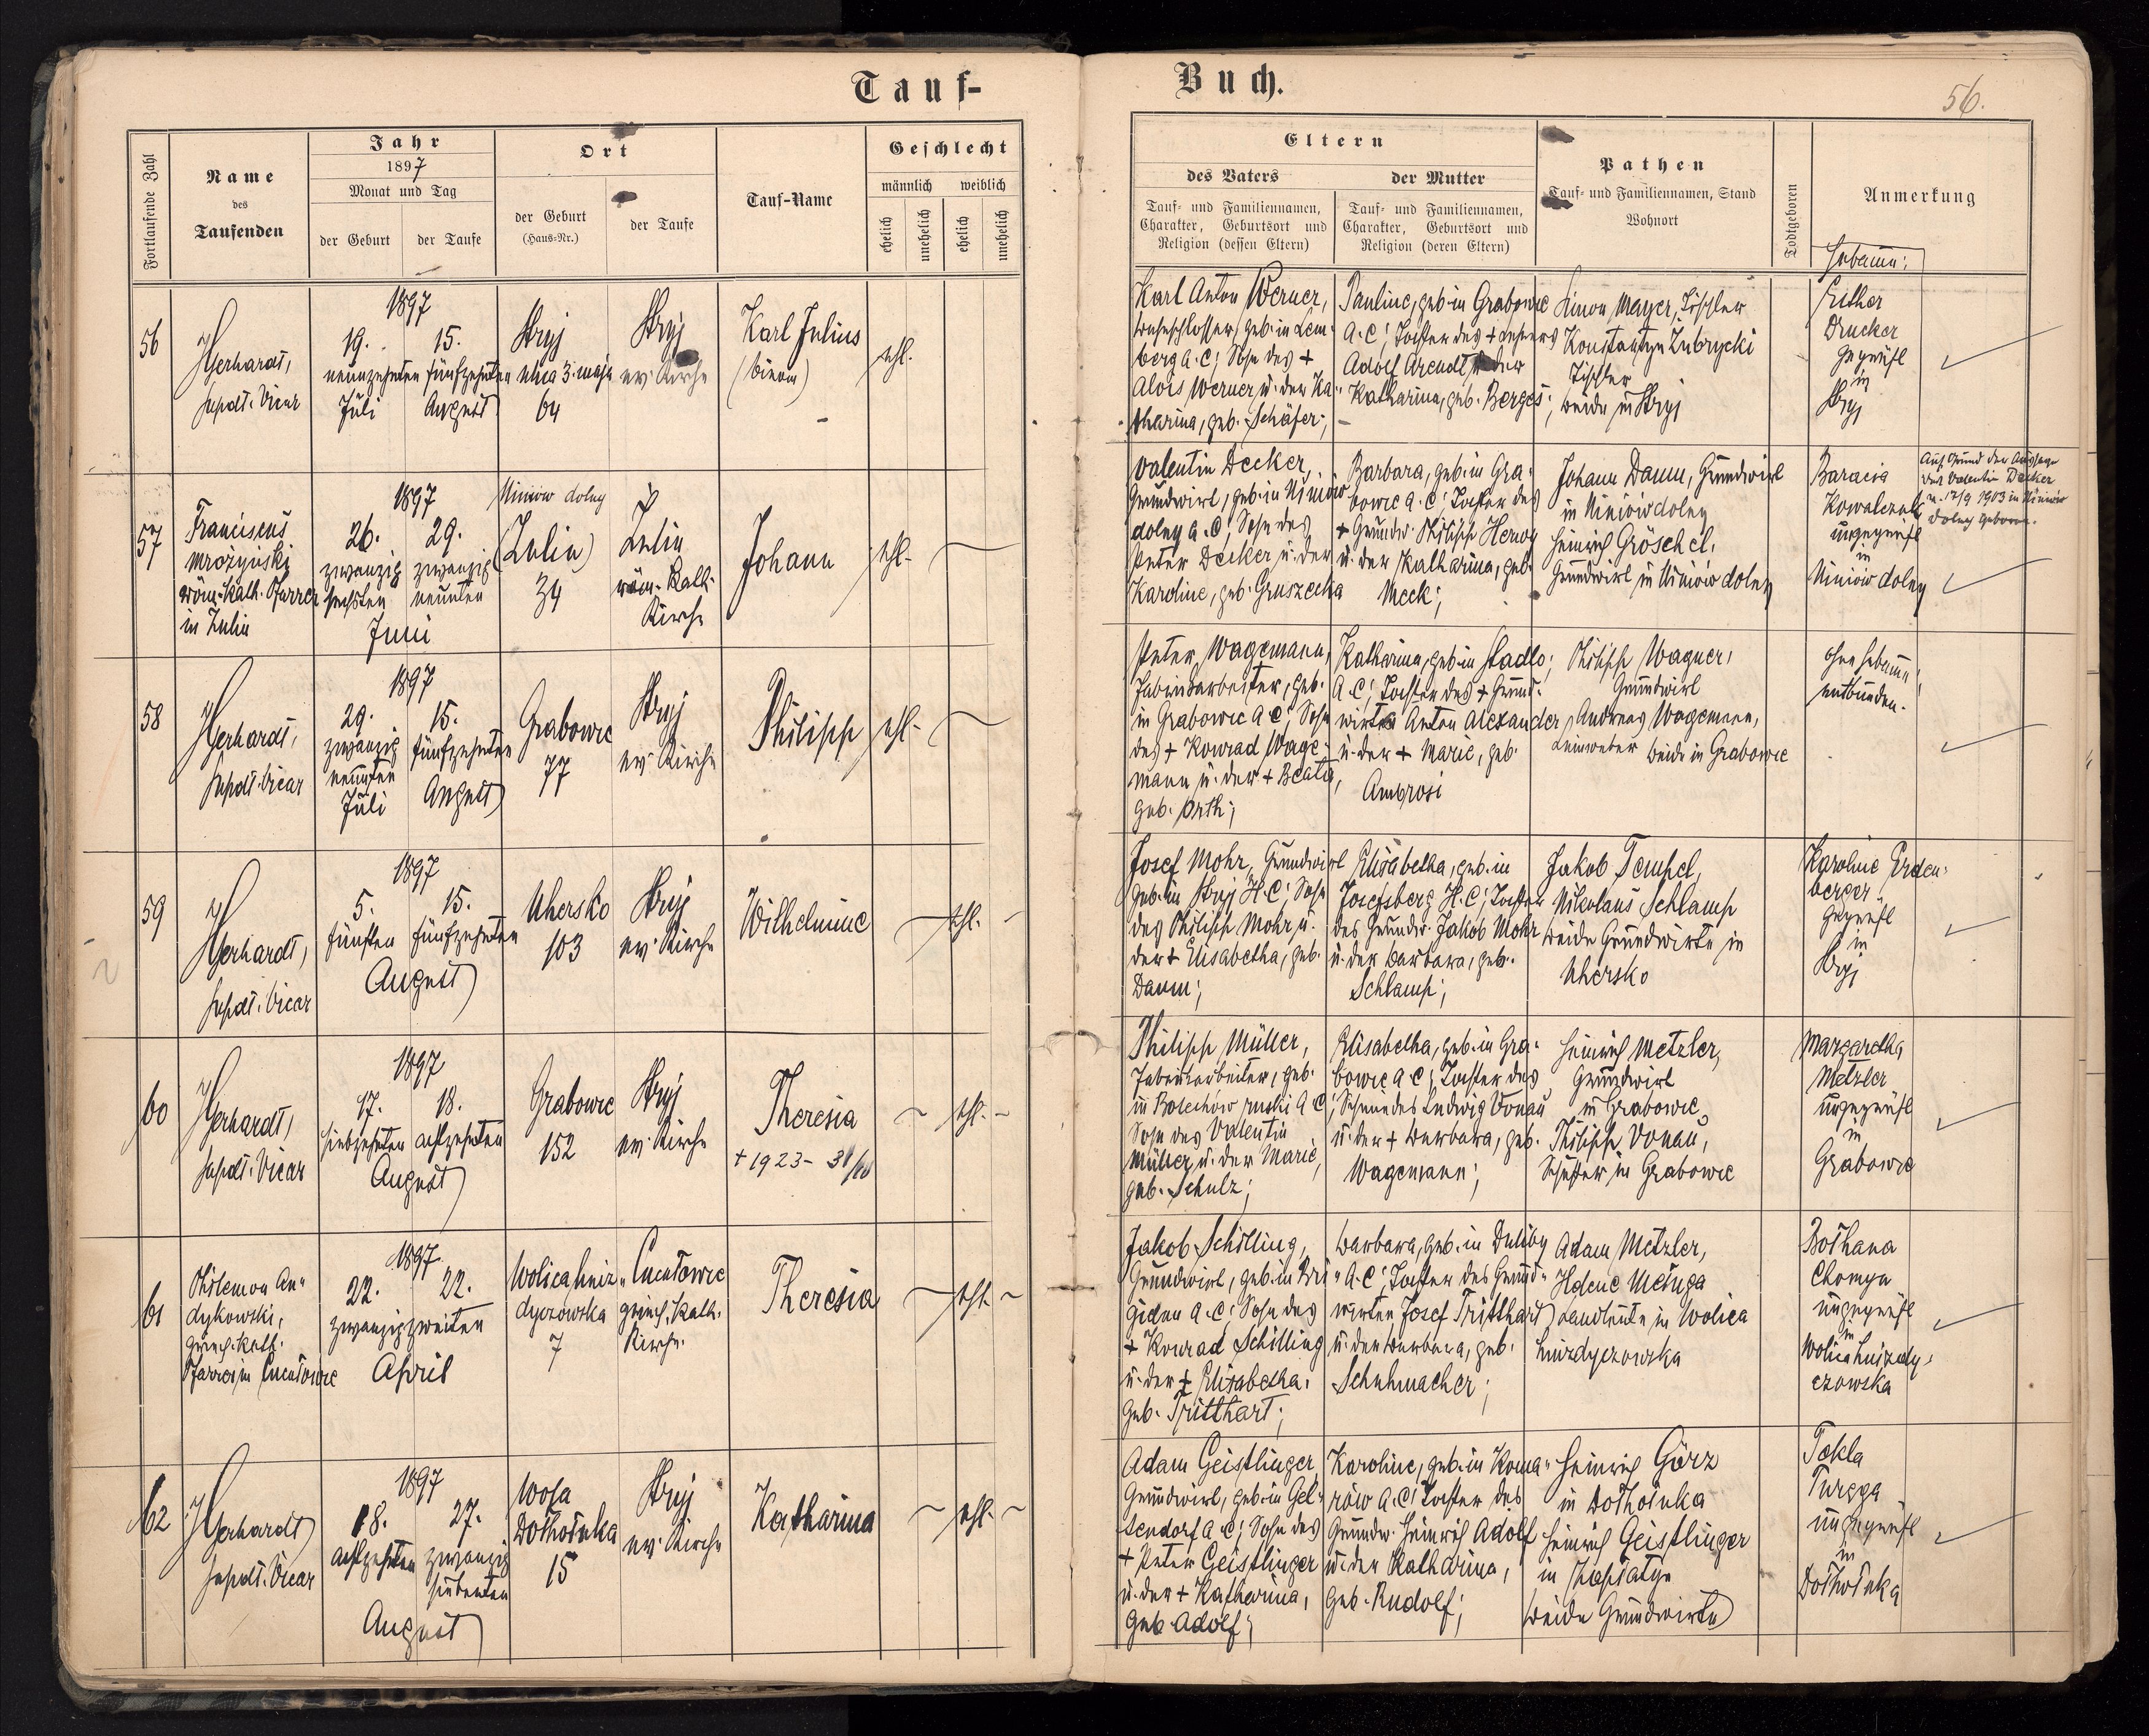 Tauf-
Buch.
56.
Fortlaufende Zahl
Name
des
Taufenden
Jahr
1897
Monat und Tag
der Geburt
der Taufe
Ort
der Geburt
(Haus-Nr.)
der Taufe
Tauf-Name
Geschlecht
männlich
weiblich
ehelich
unehelich
ehelich
unehelich
Eltern
des Vaters
Tauf- und Familiennamen,
Charakter, Geburtsort und
Religion (dessen Eltern)
der Mutter
Tauf- und Familiennamen,
Charakter, Geburtsort und
Religion (deren Eltern)
Pathen
Tauf- und Familiennamen, Stand
Wohnort
Todtgeboren
Anmerkung
Hebamme:
56
Gerhardt,
Supdt. Vicar
1897
19.
neunzehnten
Juli
15.
fünfzehnten
August
Stryj
ulica 3. maja
64
Stryj
ev. Kirche
Karl Julius
(binom)
ehl.
Karl Anton Werner,
Bauschlosser, geb. in Lem-
berg A.C; Sohn des +
Alois Werner u. der Ka-
tharina, geb. Schäfer;
Pauline, geb. in Grabowic
A.C; Tochter des + Lehrers
Adolf Arendt u. der
Katharina, geb. Berges;
Simon Mayer, Tischler
Konstantyn Zubrycki
Tischler
beide in Stryj
Esther
Drucker
geprüft
in
Stryj
57
Franciscus
Mrozyński
röm.-kath. Pfarrer
in Zulin
1897
26.
zwanzig
sechsten
29.
zwanzig
neunten
Juni
Niniów dolny
(Zulin)
34
Zulin
röm.-kath.
Kirche
Johann
ehl.
Valentin Decker,
Grundwirt, geb. in Niniów
dolny A.C; Sohn des
Peter Decker u. der
Karoline, geb. Gruszecka
Barbara, geb. in Gra-
bowic A.C; Tochter des
+ Grundw. Philipp Heroy
u. der Katharina, geb.
Meck;
Johann Daum, Grundwirt
in Niniów dolny
Heinrich Gröschel,
Grundwirt in Niniów dolny
Kowalczuk
ungeprüft
in
Niniów dolny
Auf Grund der Aussage
des Valentin Decker
v. 17/9 1903 in Niniów
dolny geboren.
58
Gerhardt,
Supdt. Vicar
1897
29.
zwanzig
neunten
Juli
15.
fünfzehnten
August
Grabowic
77
Stryj
ev. Kirche
Philipp
ehl.
Peter Wagemann,
Fabriksarbeiter, geb.
in Grabowic A.C; Sohn
des + Konrad Wage-
mann u. der + Beata,
geb. Orth;
Katharina, geb. in Stadlo;
A.C; Tochter des + Grund-
wirts Anton Alexander
u. der + Marie, geb.
Ambrosi
Philipp Wagner,
Grundwirt
Andreas Wagemann,
Leinweber beide in Grabowic
ohne Hebamme
entbunden.
59
Gerhardt,
Supdt. Vicar
1897
5.
fünften
15.
fünfzehnten
August
Uhersko
103
Stryj
ev. Kirche
Wilhelmine
ehl.
Josef Mohr, Grundwirt
geb. in Stryj H.C; Sohn
des Philipp Mohr u.
der + Elisabetha, geb.
Daum;
Elisabetha, geb. in
Josefsberg H.C; Tochter
des Grundw. Jakob Mohr
u. der Barbara, geb.
Schlamp;
Jakob Tempel,
Nikolaus Schlamp
beide Grundwirte in
Uhersko
Karoline Erden-
berger
geprüft
in
Stryj
60
Gerhardt,
Supdt. Vicar
1897
17.
siebzehnten
18.
achtzehnten
August
Grabowic
152
Stryj
ev. Kirche
Theresia
+ 1923 - 31/10
ehl.
Philipp Müller,
Fabriksarbeiter, geb.
in Bolechów ruski A.C;
Sohn des Valentin
Müller u. der Marie,
geb. Schulz;
Elisabetha, geb. in Gra-
bowic A.C; Tochter des
Schmiedes Ludwig Vonau
u. der + Barbara, geb.
Wagemann;
Heinrich Metzler,
Grundwirt
in Grabowic,
Philipp Vonau,
Schuster in Grabowic
Margaretha
Metzler
ungeprüft
in
Grabowic
61
Philemon An-
dykowski,
griech.-kath.
Pfarrer in Cucułowce
1897
22.
22.
zwanzigzweiten
April
Wolica hniz-
dyczowska
7
Cucułowce
griech. kath.
Kirche
Theresia
ehl.
Jakob Schilling,
Grundwirt, geb. in Bri-
gidau A.C; Sohn des
+ Konrad Schilling
u. der + Elisabetha,
geb. Tritthart;
Barbara, geb. in Duliby
A.C; Tochter des Grund-
wirten Josef Tritthart
u. der Barbara, geb.
Schuhmacher;
Adam Metzler,
Helene Matuga
Landleute in Wolica
hnizdyczowska
Bothana
Chomyn
ungeprüft
in
Wolica hnizdy-
czowska
62
Gerhardt
Supdt. Vicar
1897
18.
achtzehnten
27.
zwanzig
siebenten
August
Wola
Dołhołuka
15
Stryj
ev. Kirche
Katharina
ehl.
Adam Geistlinger
Grundwirt, geb. in Gel-
sendorf A.C; Sohn des
+ Peter Geistlinger
u. der + Katharina,
geb. Adolf;
Karoline, geb. in Koma-
rów A.C; Tochter des
Grundw. Heinrich Adolf
u. der Katharina,
geb. Rudolf;
Heinrich Görz
in Dołhołuka
Heinrich Geistlinger
in
beide Grundwirte
Tekla
ungeprüft
in
Dołhołuka